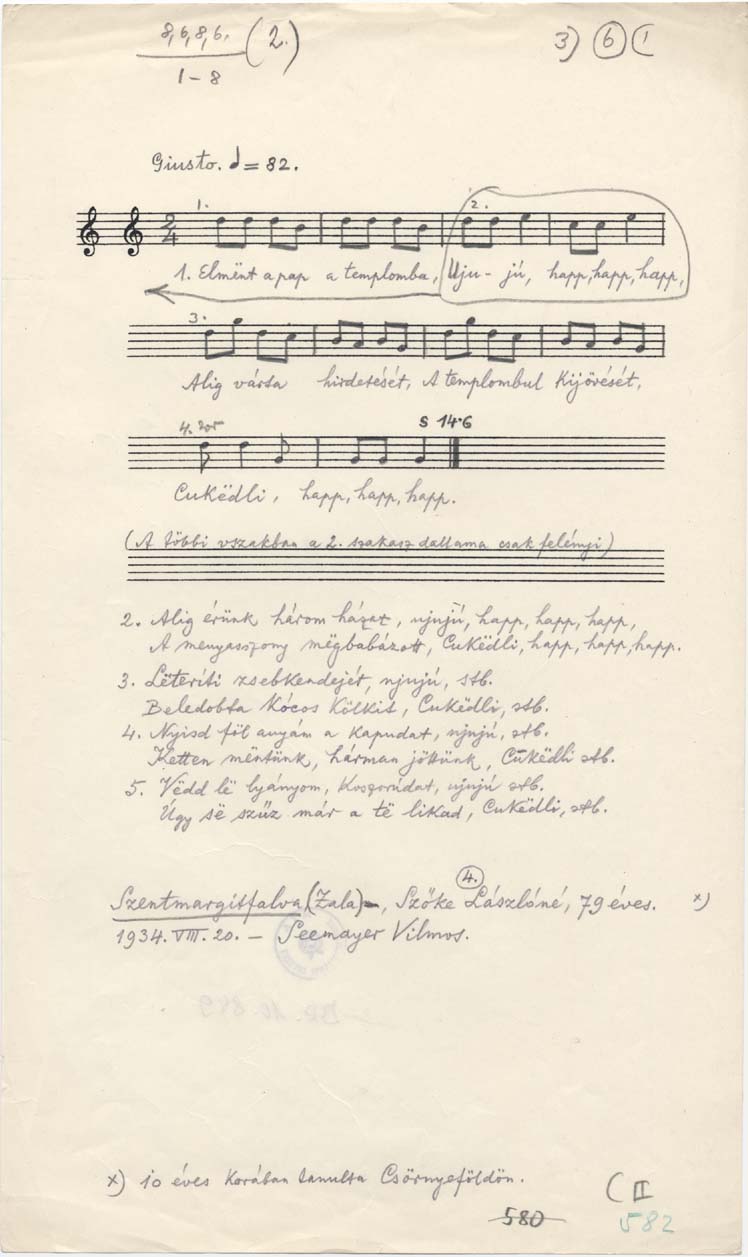 8,6,8,6. (2.)
1-8
3) 6 (1
Giusto. ♩= 82.
1. 2.
2/4
1. Elmënt a pap a templomba, Uju-jú, happ, happ, happ,
3.
Alig várta hirdetését, A templombul kijövését,
4. sor S 14·6
Cukëdli, happ, happ, happ.
(A többi vszakban a 2. szakasz dallama csak felényi)
2. Alig érünk három házat, ujujú, happ, happ, happ,
A menyasszony mëgbabázott, Cukëdli, happ, happ, happ.
3. Lëteríti zsebkendejét, ujujú, stb.
Beledobta kócos kölkit, Cukëdli, stb.
4. Nyisd föl anyám a kapudat, ujujú, stb.
Ketten mëntünk, hárman jöttünk, Cukëdli stb.
5. Vëdd lë lyányom, koszorúdat, ujujú stb.
Úgy së szűz már a të likad, Cukëdli, stb.
4.
Szentmargitfalva (Zala), Szőke Lászlóné, 79 éves. x)
1934. VIII. 20. – Seemayer Vilmos.
x) 10 éves korában tanulta Csörnyeföldön.
(II
580 582